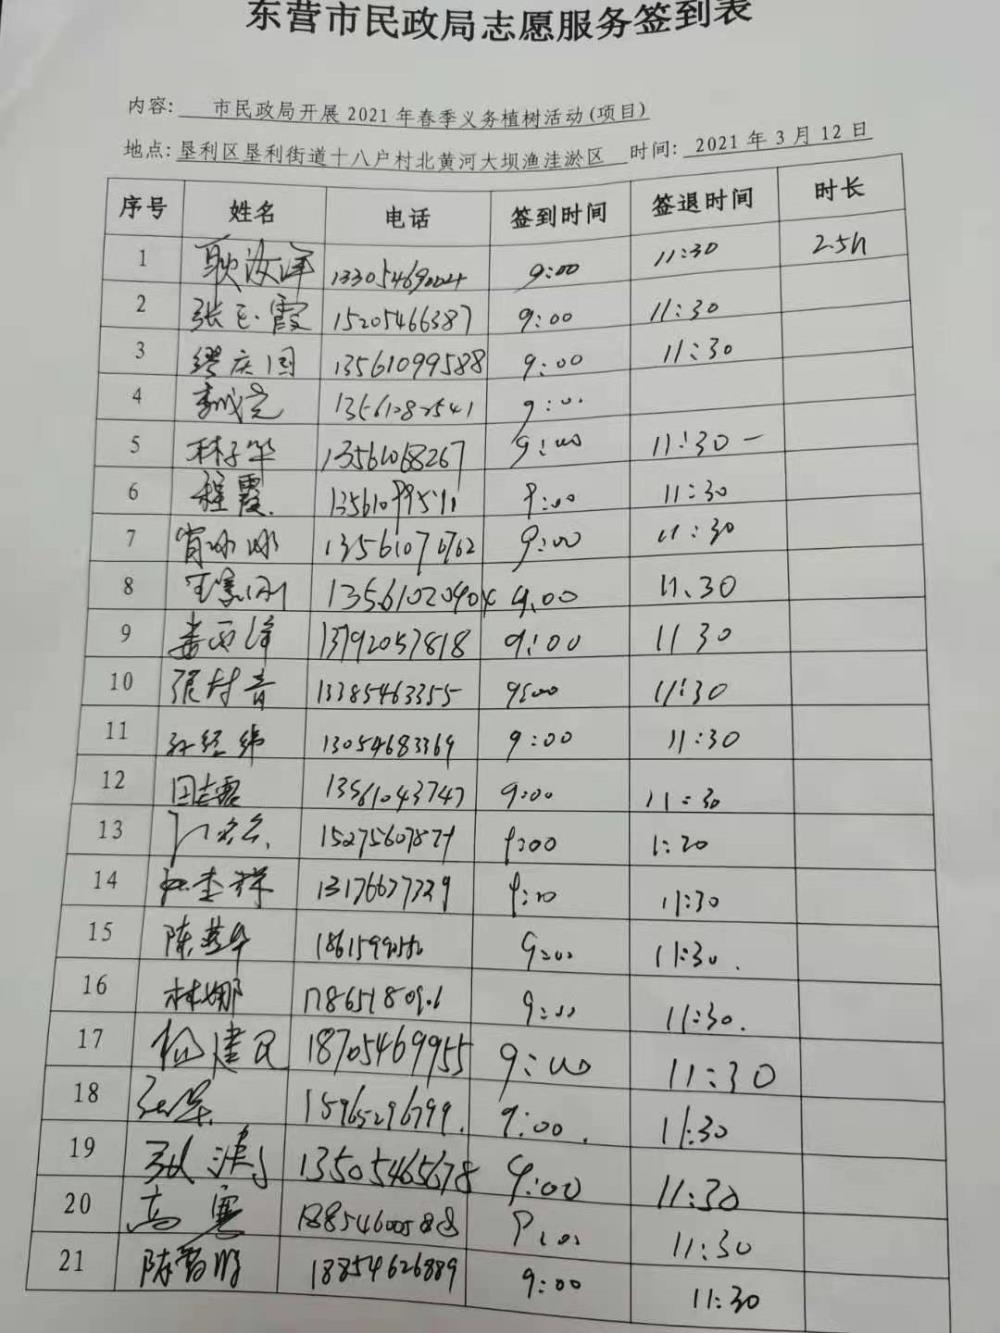 东营市民政局志愿服务签到表
内容: 市民政局开展2021年春季义务植树活动(项目)
地点: 垦利区垦利街道十八户村北黄河大坝渔洼淤区 时间: 2021年3月12日
序号 姓名 电话 签到时间 签退时间 时长
1 耿汝洋 9:00 11:30 2.5h
2 张玉霞 15205466387 9:00 11:30
3 缪庆国 13561099588 9:00 11:30
4 9:00
5 林子华 13561068267 9:00 11:30-
6 程霞. 9:00 11:30
7 肖冰冰 13561070762 9:00 11:30
8 9.00 11.30
9 13792057818 9:00 11 30
10 13385463355 9:00 11:30
11 孙经纬 13054683369 9:00 11:30
12 田志霞 13561043747 9:00 11:30
13 9:00 1:20
14 13176677329 11:30
15 陈燕华 9:00 11:30.
16 林娜 9:00 11:30.
17 杨建民 18705469955 9:00 11:30
18 15965296799. 9:00. 11:30
19 13505465678 9:00 11:30
20 高寒 18854600588 9:00 11:30
21 18854626889 9:00 11:30